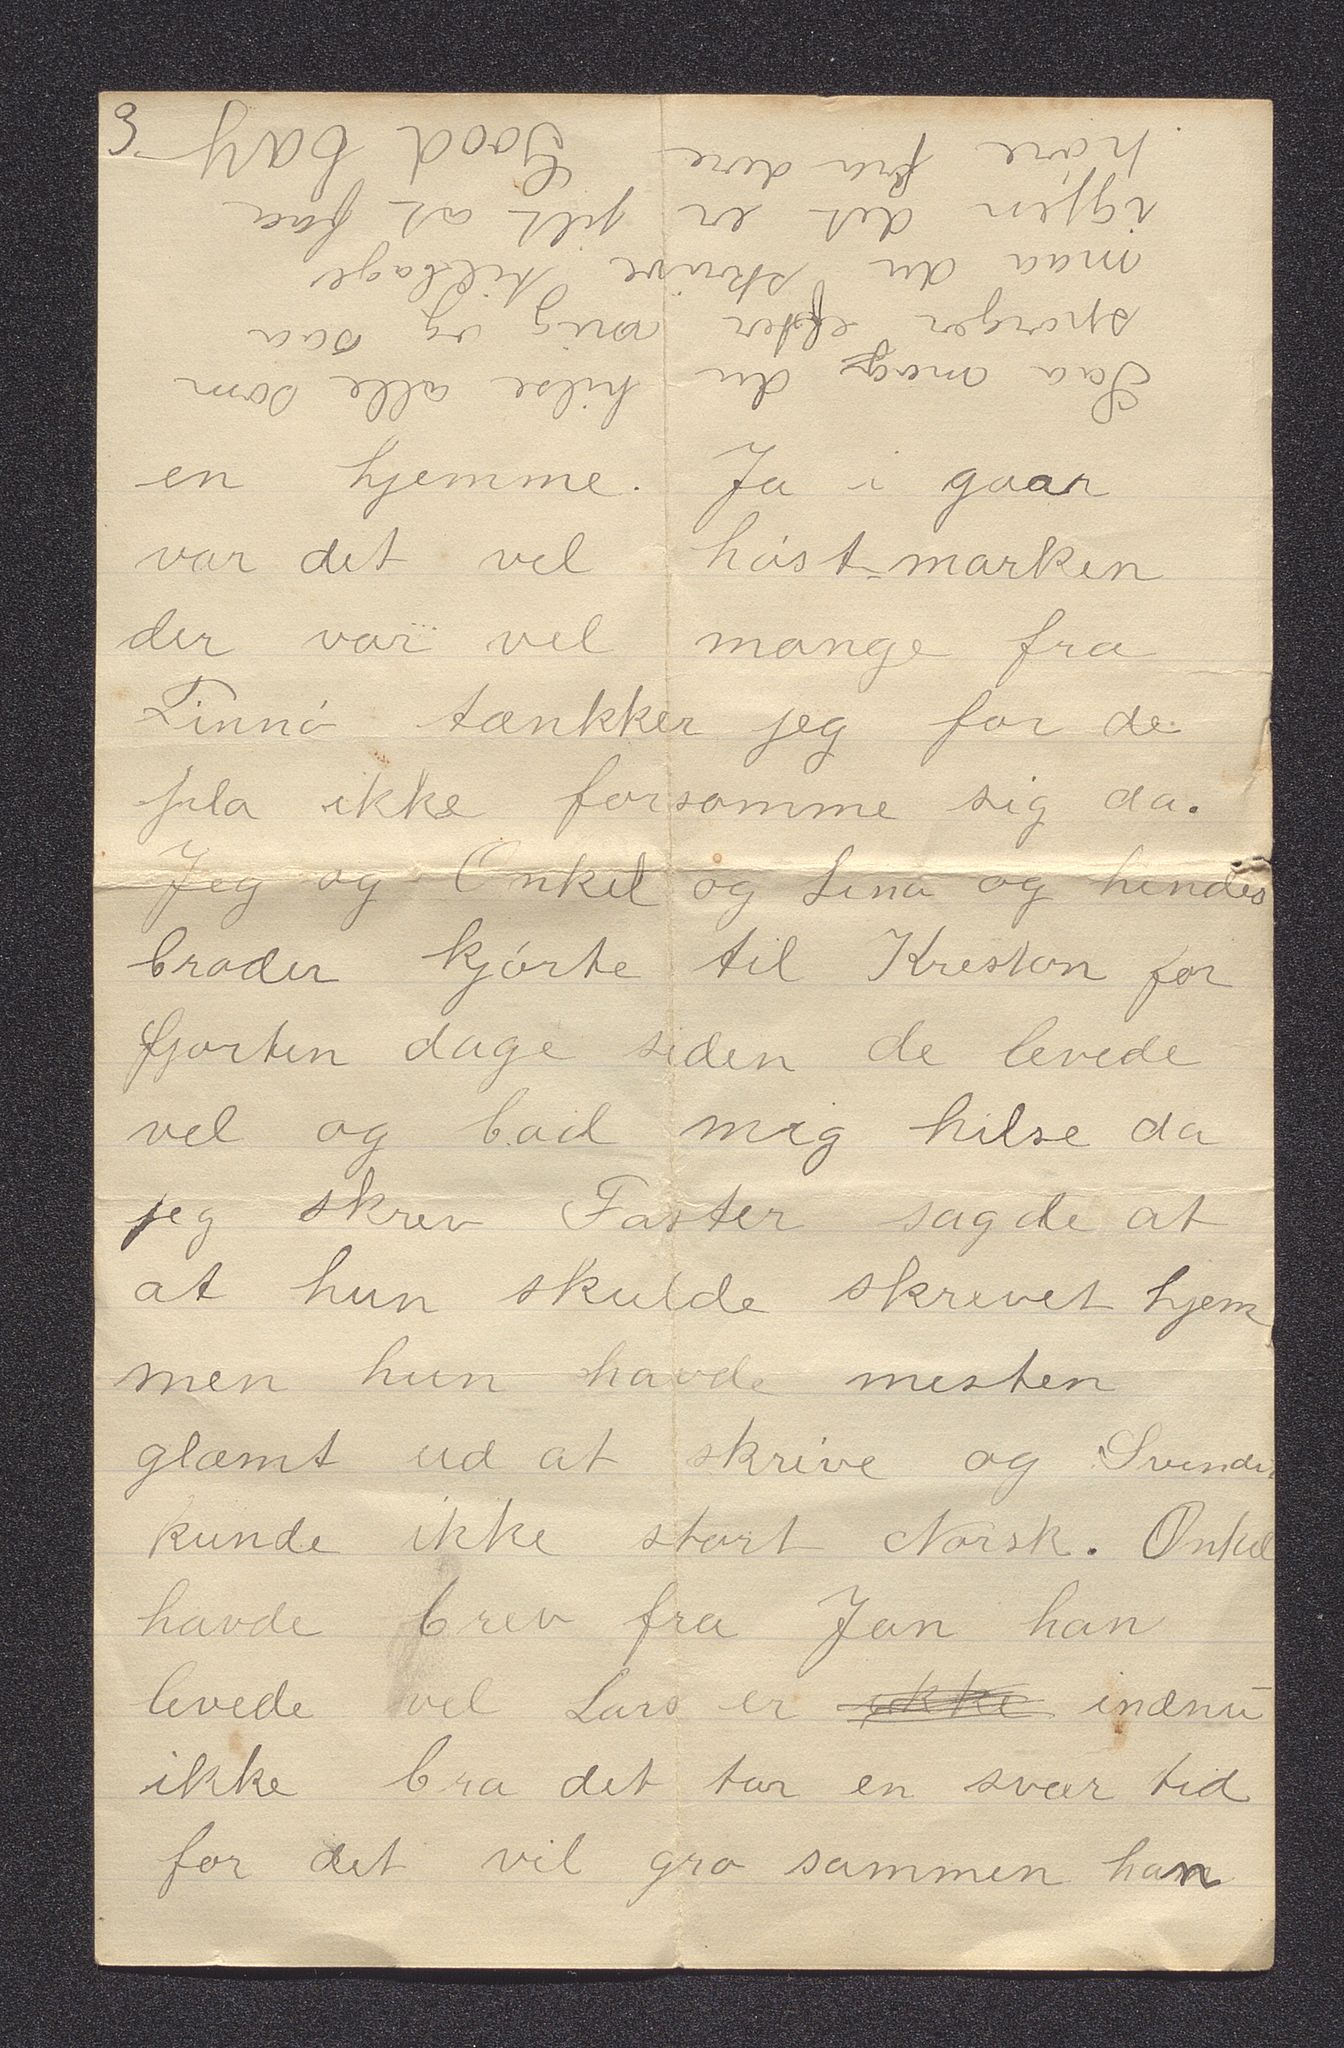 3
en hjemme. Ja i gaar
var det vel høst-marken
der var vel mange fra
Finnø tænkker jeg for de
pla ikke forsomme sig da.
Jeg og Onkel og Lina og hindes
broder kjørte til Kreston for
fjorten dage siden de levede
vel og bad mig hilse da
jeg skrev Faster sagde at
at hun skulde skrevet hjem
men hun havde mesten
glæmt ud at skrive og Svend
kunde ikke stort Norsk. Onkel
havde brev fra Jan han
levede vel Lars er ikke indnu
ikke bra det tar en svær tid
for det vil gro sammen han
Saa maa du hilse alle som
spørger efter mig og saa
maa du skrive tilbage
igjen det er jilt at faa
høre fra dere Good bay